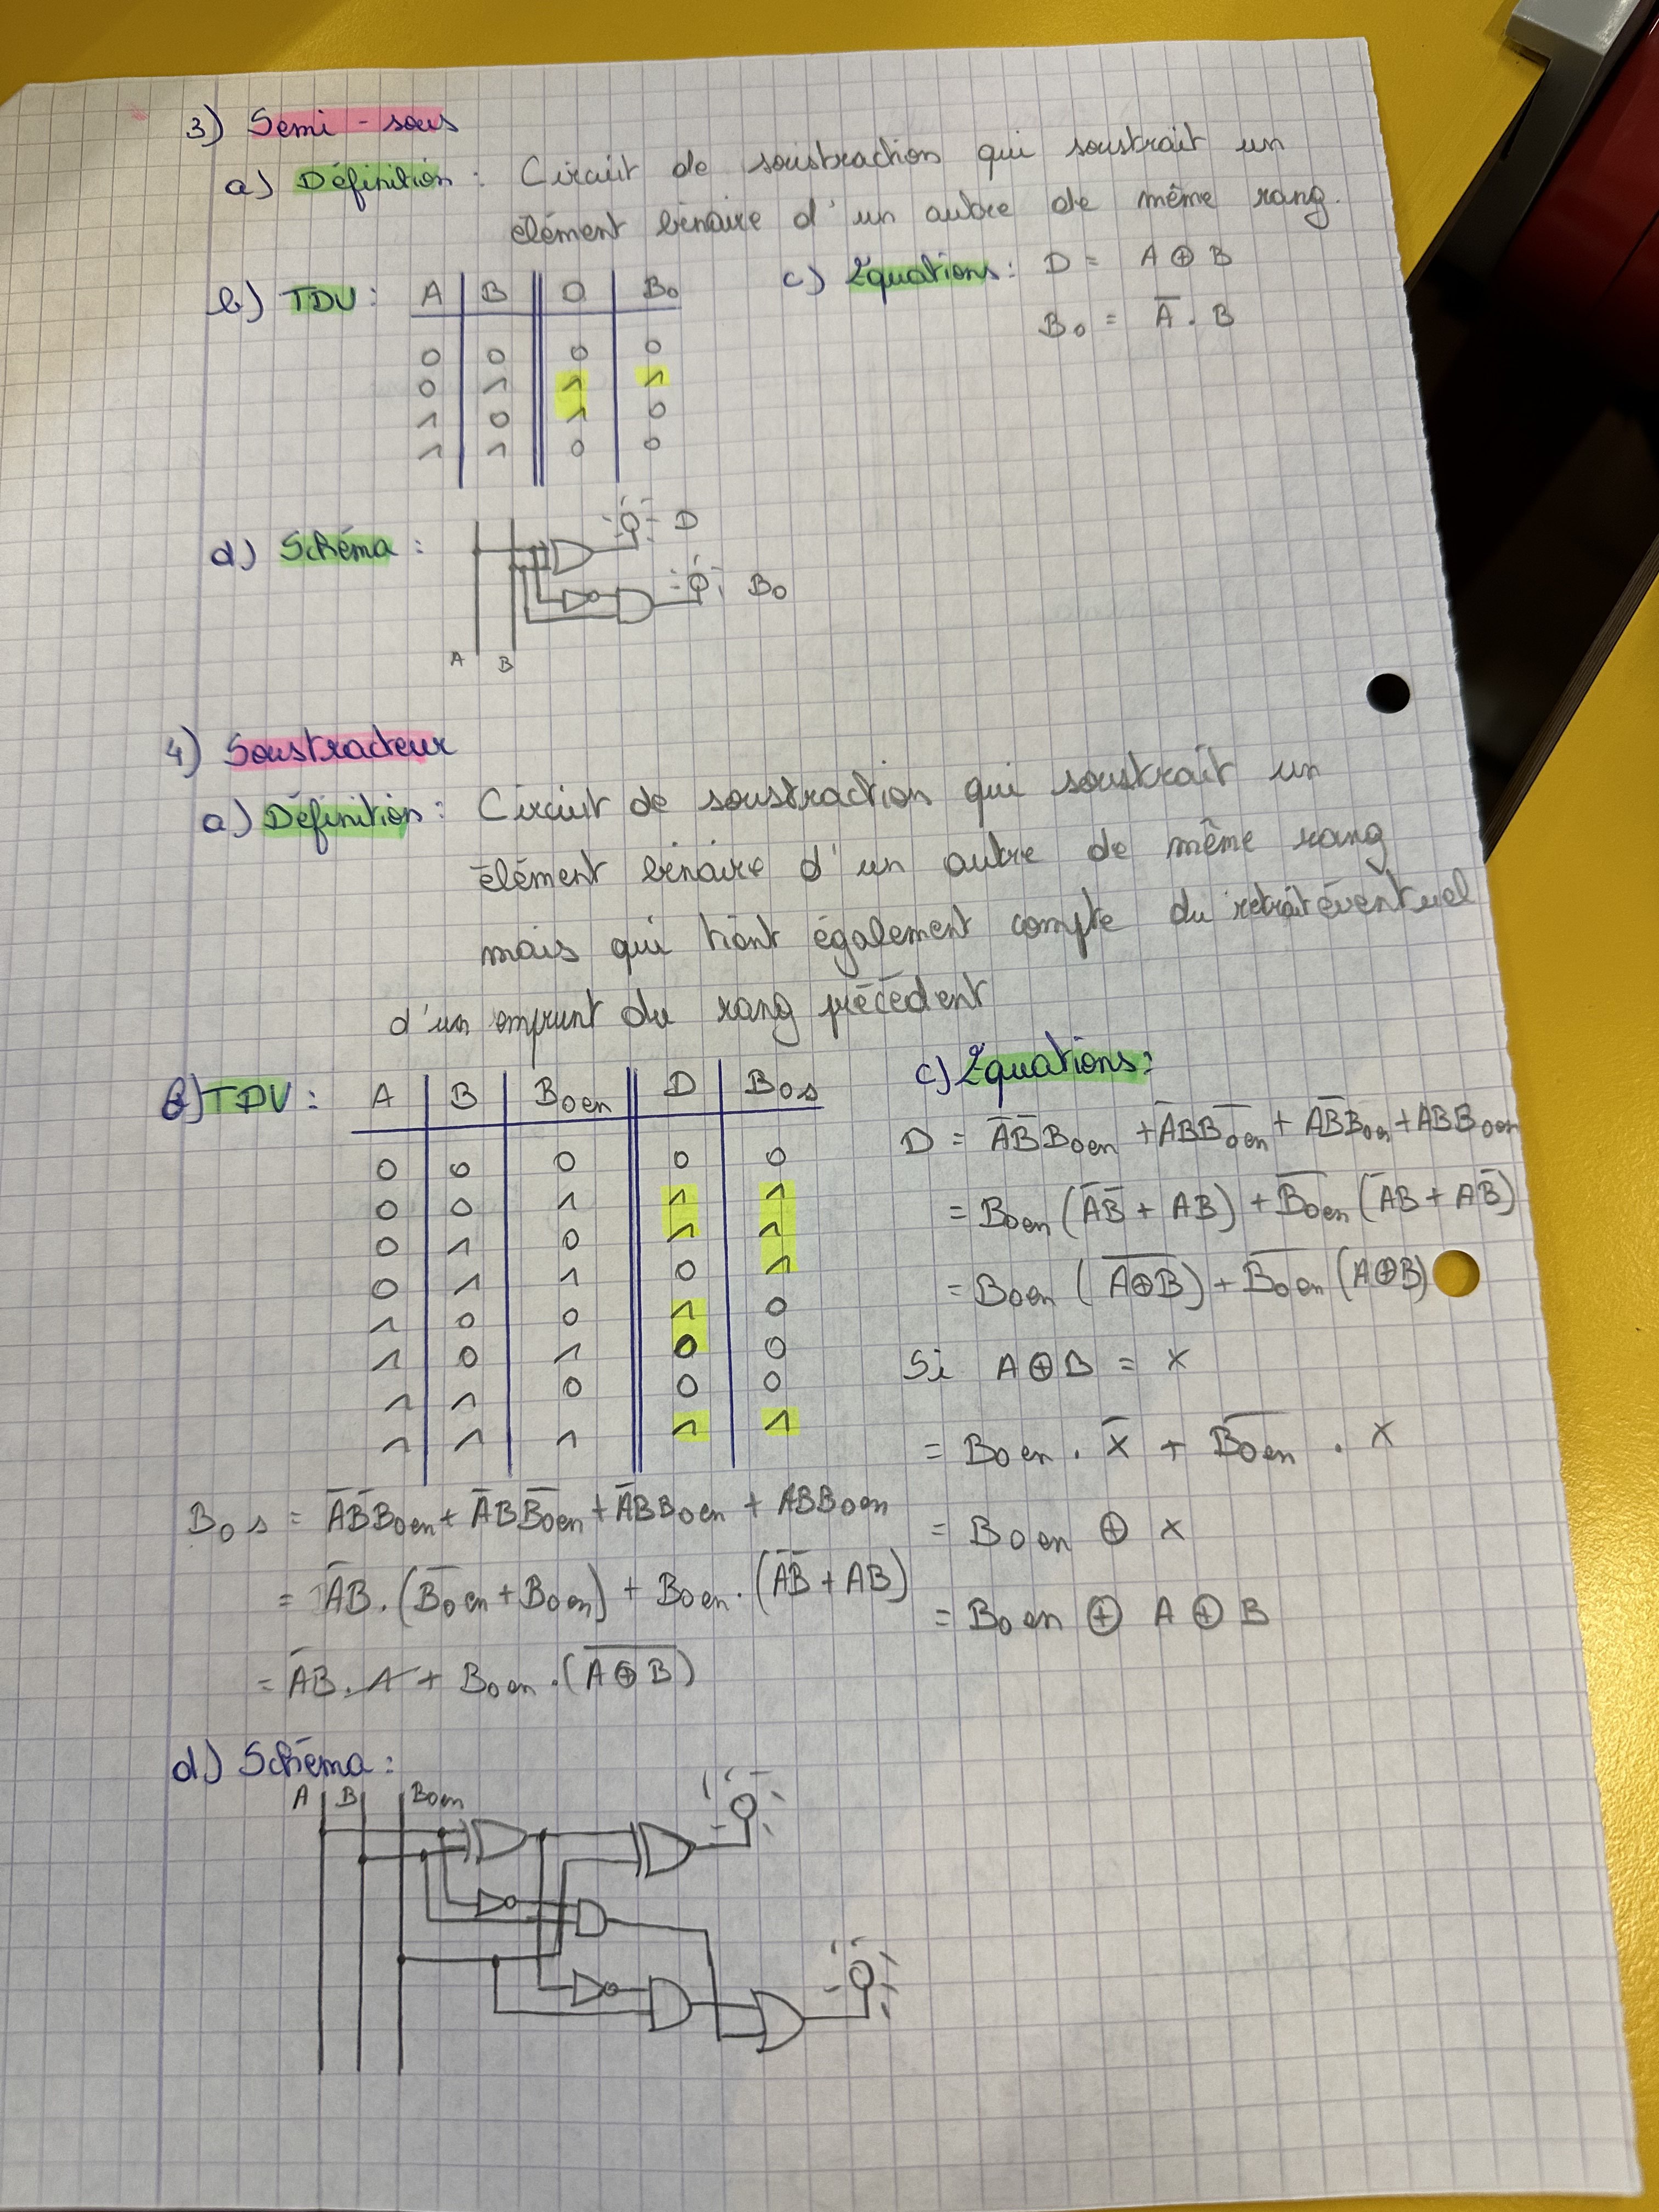 3) Semi - sous
a) Définition : Circuit de soustraction qui soustrait un
élément binaire d'un autre de même rang.
b) TDV : A B D B₀
0 0 0 0
0 1 1 1
1 0 1 0
1 1 0 0
c) Equations : D = A ⊕ B
B₀ = A̅ . B
d) Schéma :
D
B₀
A B
4) Soustracteur
a) Définition : Circuit de soustraction qui soustrait un
élément binaire d'un autre de même rang
mais qui tient également compte du retrait éventuel
d'un emprunt du rang précédent
b) TDV : A B B₀en D B₀s
0 0 0 0 0
0 0 1 1 1
0 1 0 1 1
0 1 1 0 1
1 0 0 1 0
1 0 1 0 0
1 1 0 0 0
1 1 1 1 1
c) Equations :
D = A̅ B̅ B₀en + A̅ B B̅₀en̅ + A B̅ B̅₀en̅ + A B B₀en
= B₀en (A̅ B̅ + AB) + B̅₀en̅ (A̅ B + A B̅)
= B₀en (A̅ ⊕̅ B̅) + B̅₀en̅ (A ⊕ B)
Si A ⊕ B = x
= B₀en . x̅ + B̅₀en̅ . x
= B₀en ⊕ x
= B₀en ⊕ A ⊕ B
B₀s = A̅ B̅ B₀en + A̅ B B̅₀en̅ + A̅ B B₀en + A B B₀en
= A̅ B . (B̅₀en̅ + B₀en) + B₀en . (A̅ B̅ + AB)
= A̅ B . 1 + B₀en . (A̅ ⊕̅ B̅)
d) Schéma :
A B B₀en